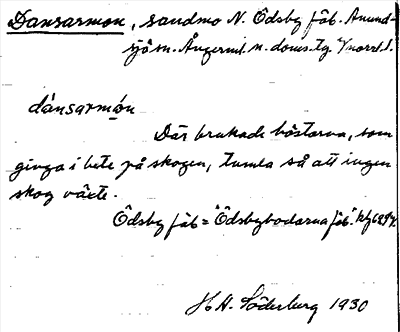 Dansarmon, sandmo N. Ödsby fäb. Anund-
sjö sn. Ångerml. n. doms. tg. Ynorrl. l.
dánsarmón
Där brukade hästarna, som
gingo i bete på skogen, tumla så att ingen
skog växte.
Ödsby fäb = "Ödsbybodarna fäb."
H. H. Söderburg 1930